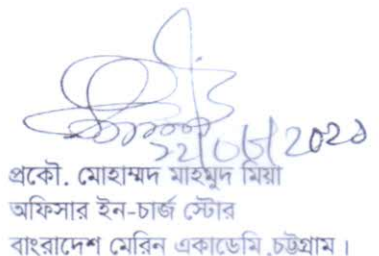 প্রকৌ. মোহাম্মদ মাহমুদ মিয়া
অফিসার ইন-চার্জ স্টোর
বাংলাদেশ মেরিন একাডেমি,চট্টগ্রাম।